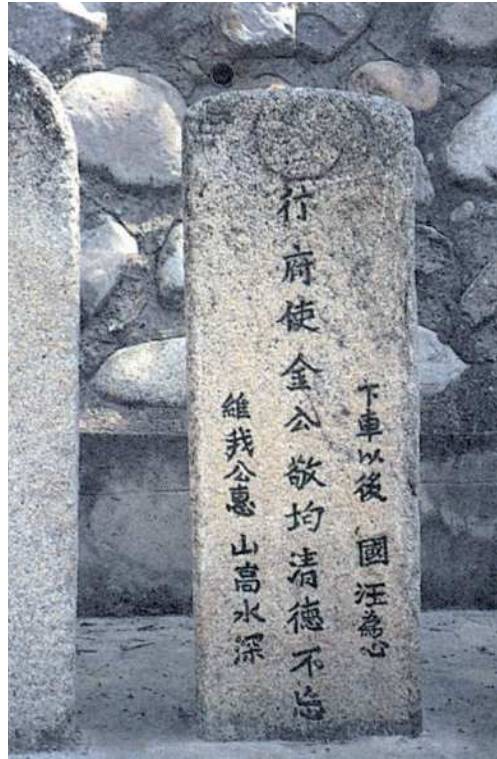 下車以後 國汪為心
行府使金公敬均清德不忘
維我公惠 山高水深